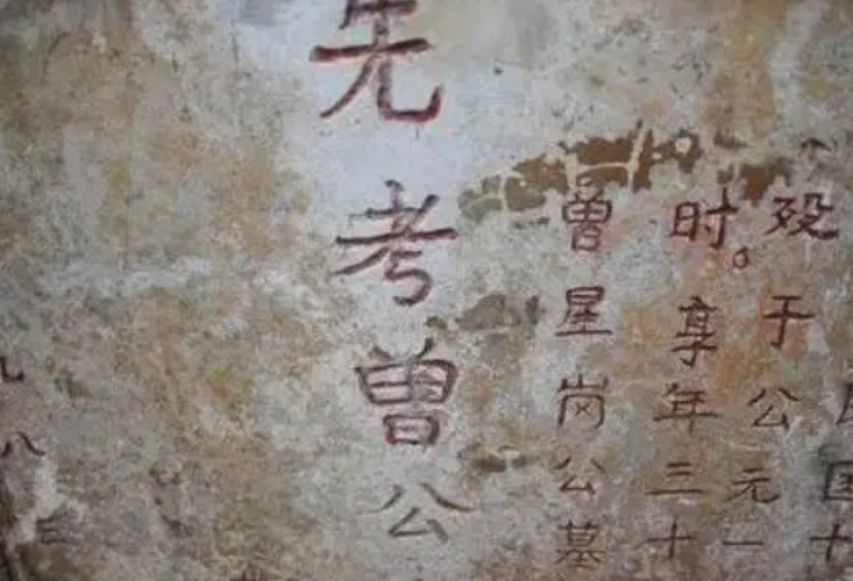 民国十
殁于公元一
时。享年三十
曾星岗公墓
先考曾公
九八三